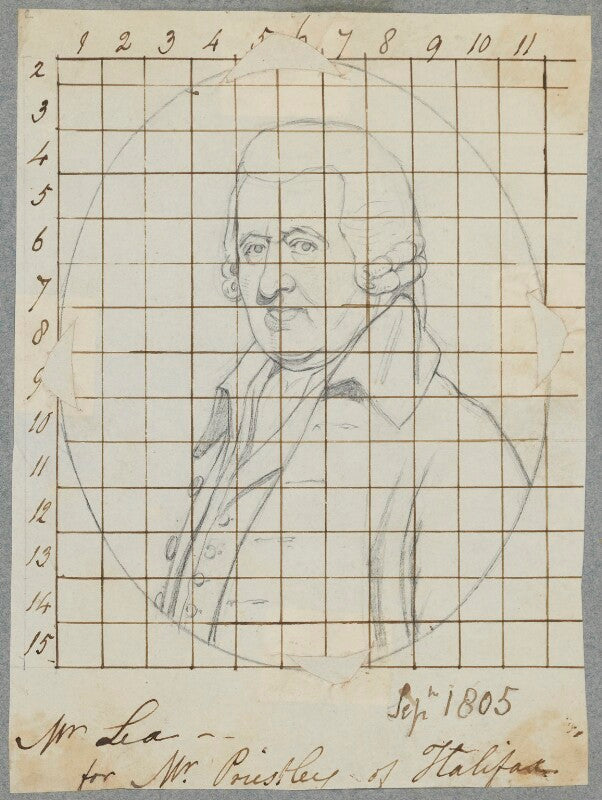 1 2 3 4 5 6 7 8 9 10 11
2
3
4
5
6
7
8
9
10
11
12
13
14
15
Sepr 1805
Mr Lea –
for Mr. Priestley of Halifax